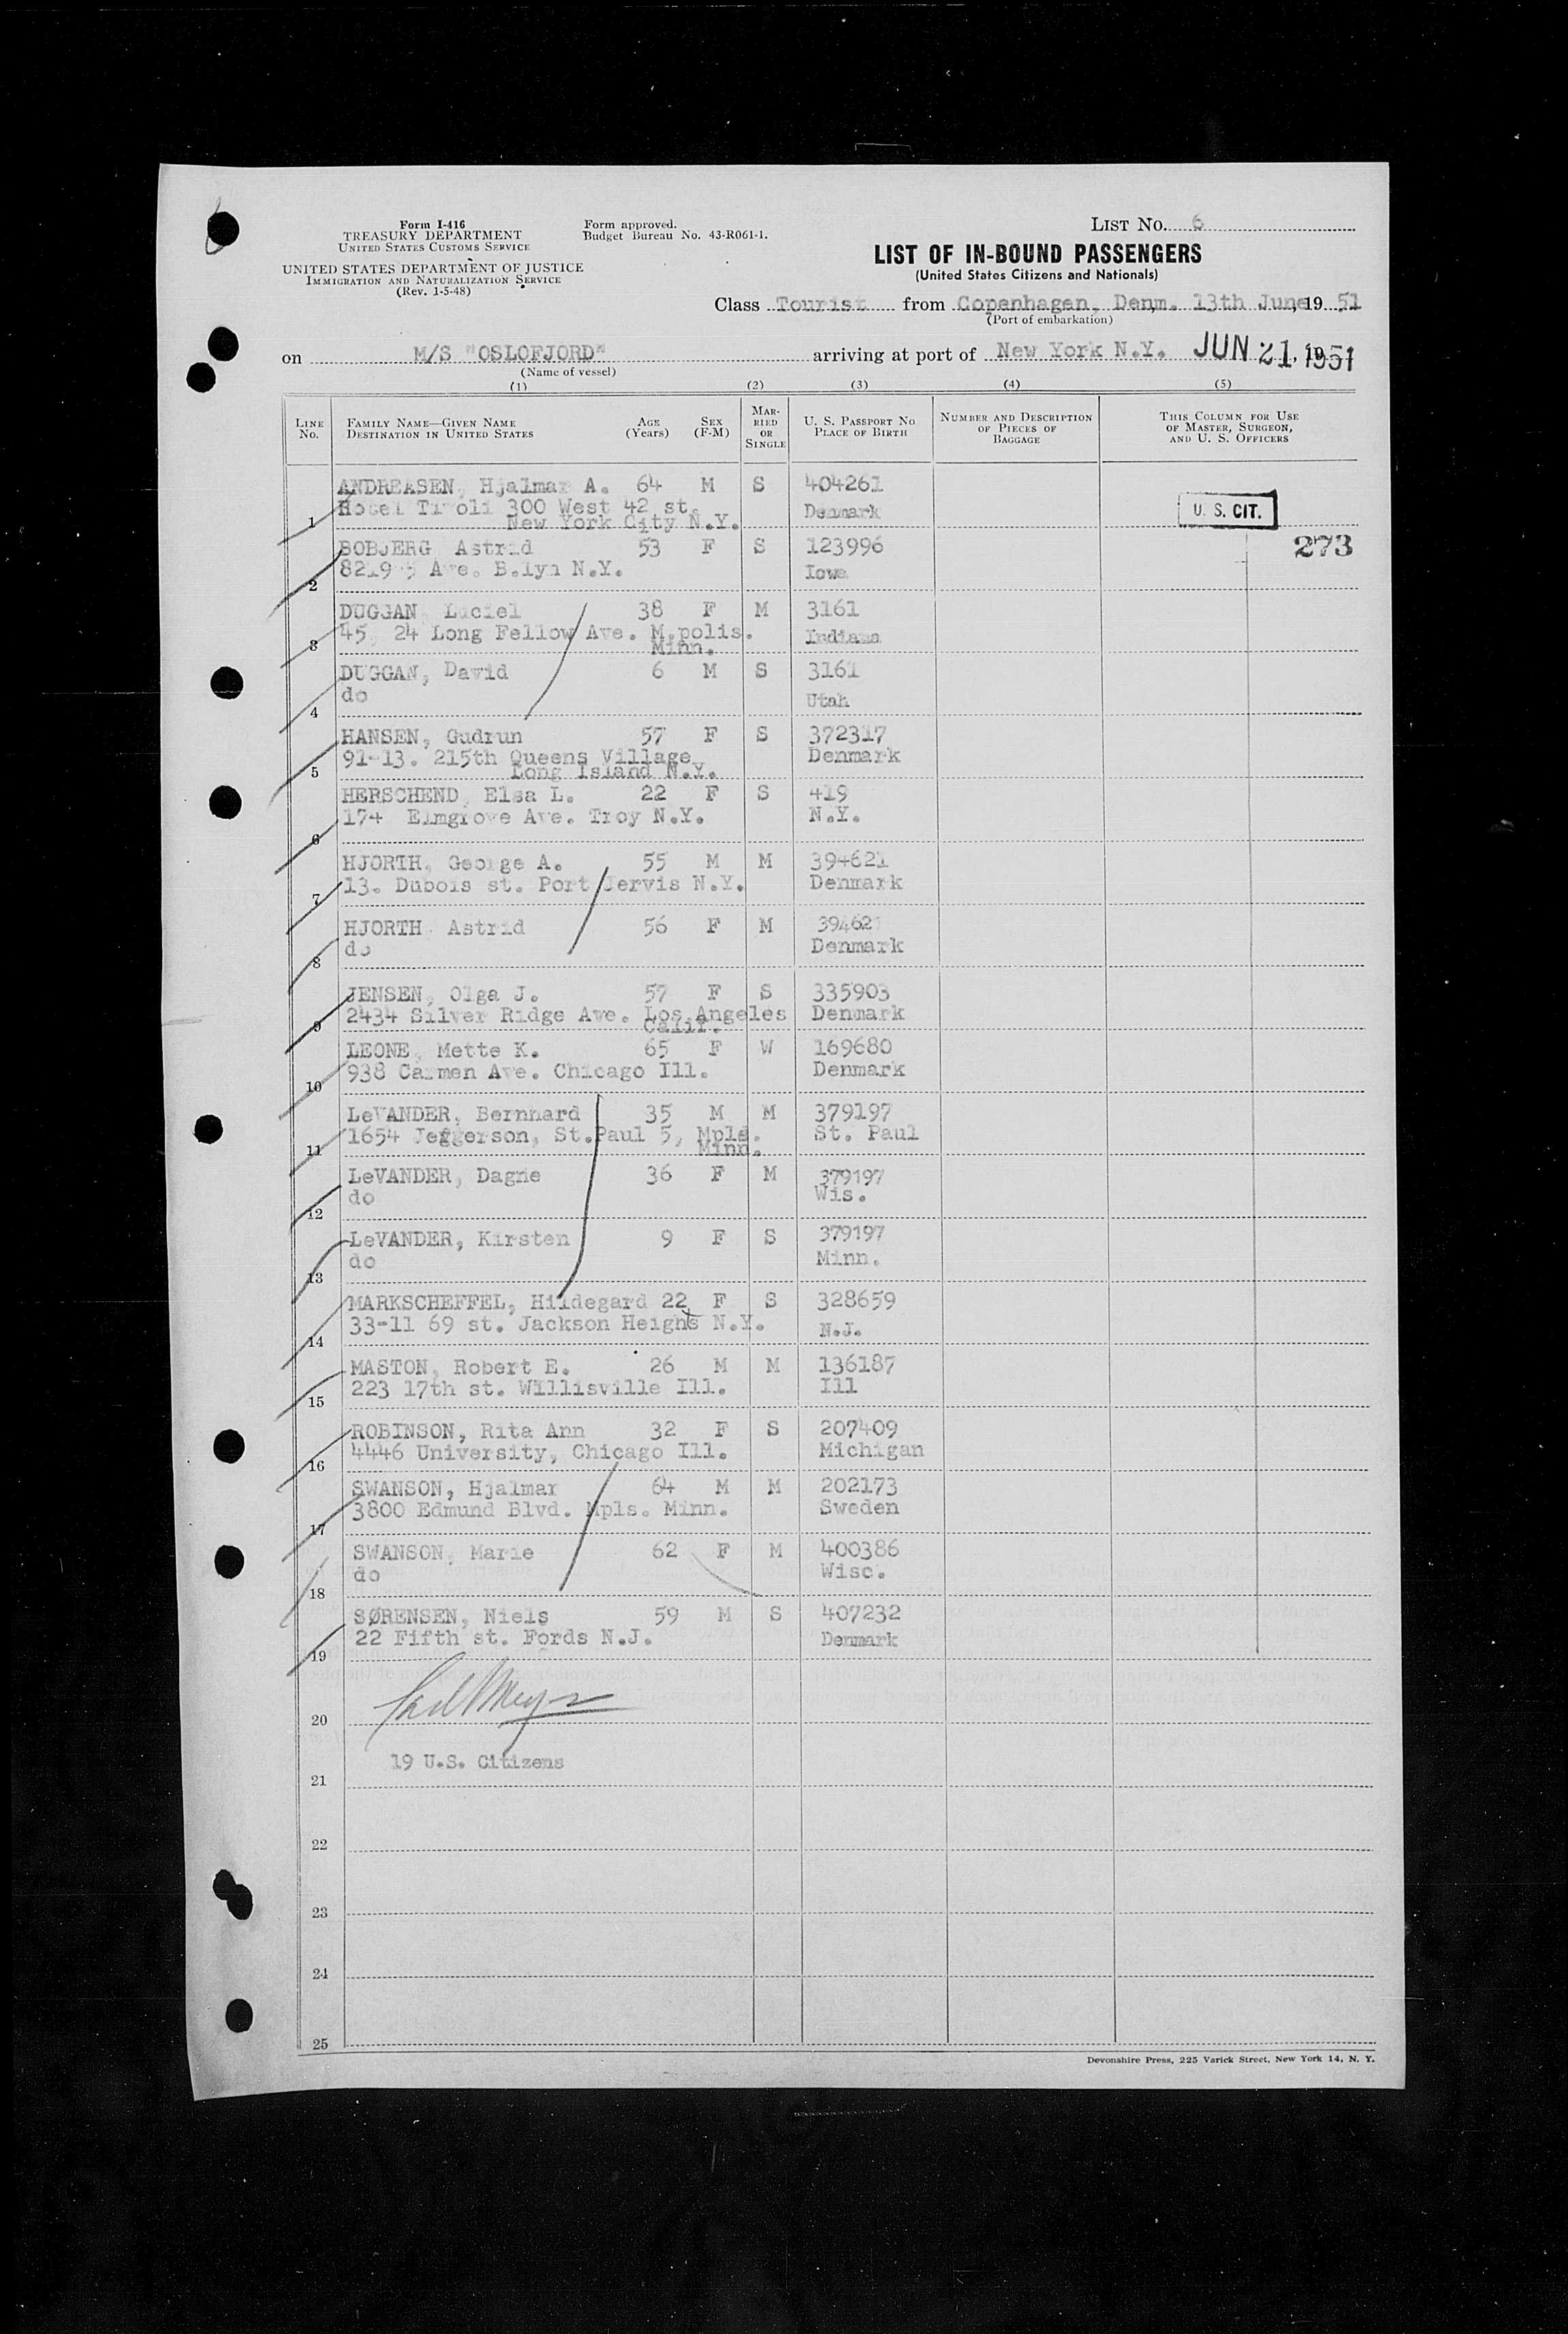 Form I-416
TREASURY DEPARTMENT
UNITED STATES CUSTOMS SERVICE
UNITED STATES DEPARTMENT OF JUSTICE
IMMIGRATION AND NATURALIZATION SERVICE
(Rev. 1-5-48)
Form approved.
Budget Bureau No. 43-R061-1.
LIST No. 6
LIST OF IN-BOUND PASSENGERS
(United States Citizens and Nationals)
Class Tourist from Copenhagen, Denm. 13th June, 19 51
(Port of embarkation)
on M/S "OSLOFJORD" arriving at port of New York N.Y. JUN 21, 1951
(Name of vessel)
(1) (2) (3) (4) (5)
LINE No. FAMILY NAME—GIVEN NAME DESTINATION IN UNITED STATES AGE (Years) SEX (F-M) MARRIED OR SINGLE U. S. PASSPORT NO PLACE OF BIRTH NUMBER AND DESCRIPTION OF PIECES OF BAGGAGE THIS COLUMN FOR USE OF MASTER, SURGEON, AND U. S. OFFICERS
ANDREASEN, Hjalmar A. 64 M S 404261
Hotel Tivoli 300 West 42 st. Denmark U. S. CIT.
1 New York City N.Y.
BOBJERG Astrid 53 F S 123996 273
8219 5 Ave. B.lyn N.Y. Iowa
2
DUGGAN, Luciel 38 F M 3161
45, 24 Long Fellow Ave. M.polis. Indiana
3 Minn.
DUGGAN, David 6 M S 3161
do Utah
4
HANSEN, Gudrun 57 F S 372317
91-13. 215th Queens Village Denmark
5 Long Island N.Y.
HERSCHEND, Elsa L. 22 F S 419
174 Elmgrove Ave. Troy N.Y. N.Y.
6
HJORTH, George A. 55 M M 394621
13. Dubois st. Port Jervis N.Y. Denmark
7
HJORTH Astrid 56 F M 394621
do Denmark
8
JENSEN, Olga J. 57 F S 335903
2434 Silver Ridge Ave. Los Angeles Denmark
9 Calif.
LEONE, Mette K. 65 F W 169680
938 Carmen Ave. Chicago Ill. Denmark
10
LeVANDER, Bernhard 35 M M 379197
1654 Jeggerson, St.Paul 5, Mpls. St. Paul
11 Minn.
LeVANDER, Dagne 36 F M 379197
do Wis.
12
LeVANDER, Kirsten 9 F S 379197
do Minn.
13
MARKSCHEFFEL, Hildegard 22 F S 328659
33-11 69 st. Jackson Heights N.Y. N.J.
14
MASTON, Robert E. 26 M M 136187
223 17th st. Willisville Ill. Ill
15
ROBINSON, Rita Ann 32 F S 207409
4446 University, Chicago Ill. Michigan
16
SWANSON, Hjalmar 64 M M 202173
3800 Edmund Blvd. Mpls. Minn. Sweden
17
SWANSON, Marie 62 F M 400386
do Wisc.
18
SØRENSEN, Niels 59 M S 407232
22 Fifth st. Fords N.J. Denmark
19
20
19 U.S. Citizens
21
22
23
24
25
Devonshire Press, 225 Varick Street, New York 14, N. Y.